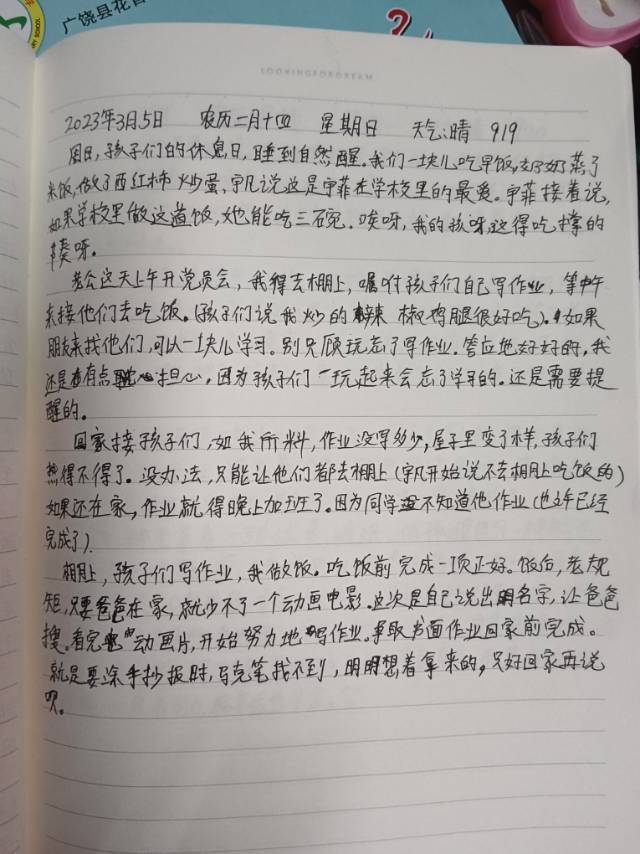 广饶县花官
LOOKINGFORDREAM
2023年3月5日 农历二月十四 星期日 天气:晴 919
周日,孩子们的休息日,睡到自然醒。我们一块儿吃早饭,奶奶蒸了
米饭,做了西红柿炒蛋、宇凡说这是宇菲在学校里的最爱。宇菲接着说,
如果学校里做这道饭,她能吃三碗。唉呀,我的孩呀,这得吃撑的
揍呀。
老公这天上午开党员会,我得去棚上,嘱咐孩子们自己写作业,等中午
来接他们去吃饭。(孩子们说我炒的辣椒鸡腿很好吃)。如果
朋友来找他们,可以一块儿学习。别只顾玩忘了写作业。答应地好好的,我
还是有点担心,因为孩子们一玩起来会忘了学习的。还是需要提
醒的。
回家接孩子们,如我所料,作业没写多少,屋子里变了样,孩子们
愁得不得了。没办法,只能让他们都去棚上(宇凡开始说不去棚上吃饭的)
如果还在家,作业就得晚上加班了。因为同学不知道他作业(也许已经
完成了)。
棚上,孩子们写作业,我做饭。吃饭前完成一项正好。饭后,老规
矩,只要爸爸在家,就少不了一个动画电影。这次是自己说出名字,让爸爸
搜。看完动画片,开始努力地写作业。争取书面作业回家前完成。
就是要涂手抄报时,马克笔找不到,明明想着拿来的,只好回家再说
呗。